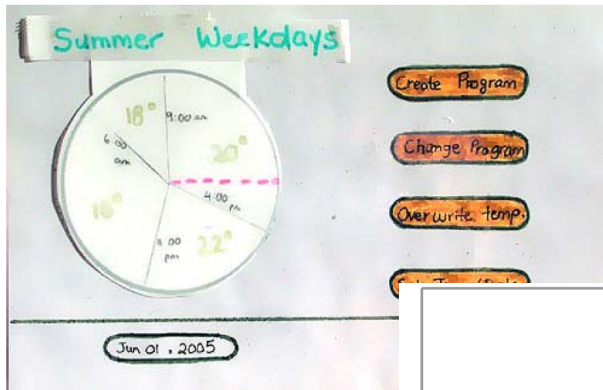 Summer Weekdays
18°
9:00 am
6:00
am
20°
4:00
pm
16°
22°
pm
Create Program
Change Program
Overwrite temp.
Jun 01, 2005